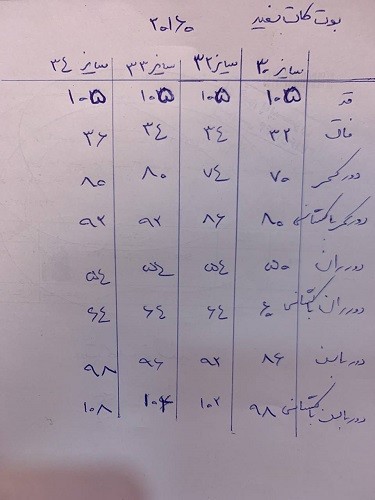 بوت کات سفید ۲۰۱۶۰
سایز ۳۰ سایز ۳۲ سایز ۳۳ سایز ۳۴
قد ۱۰۵ ۱۰۵ ۱۰۵ ۱۰۵
فاق ۳۲ ۳۴ ۳۴ ۳۶
دور کمر ۷۰ ۷۴ ۸۰ ۸۰
دور کمر با کشسانی ۸۰ ۸۶ ۹۲ ۹۲
دور ران ۵۰ ۵۴ ۵۴ ۵۴
دور ران با کشسانی ۶۰ ۶۴ ۶۴ ۶۴
دور باسن ۸۶ ۹۲ ۹۶ ۹۸
دور باسن با کشسانی ۹۸ ۱۰۲ ۱۰۴ ۱۰۸